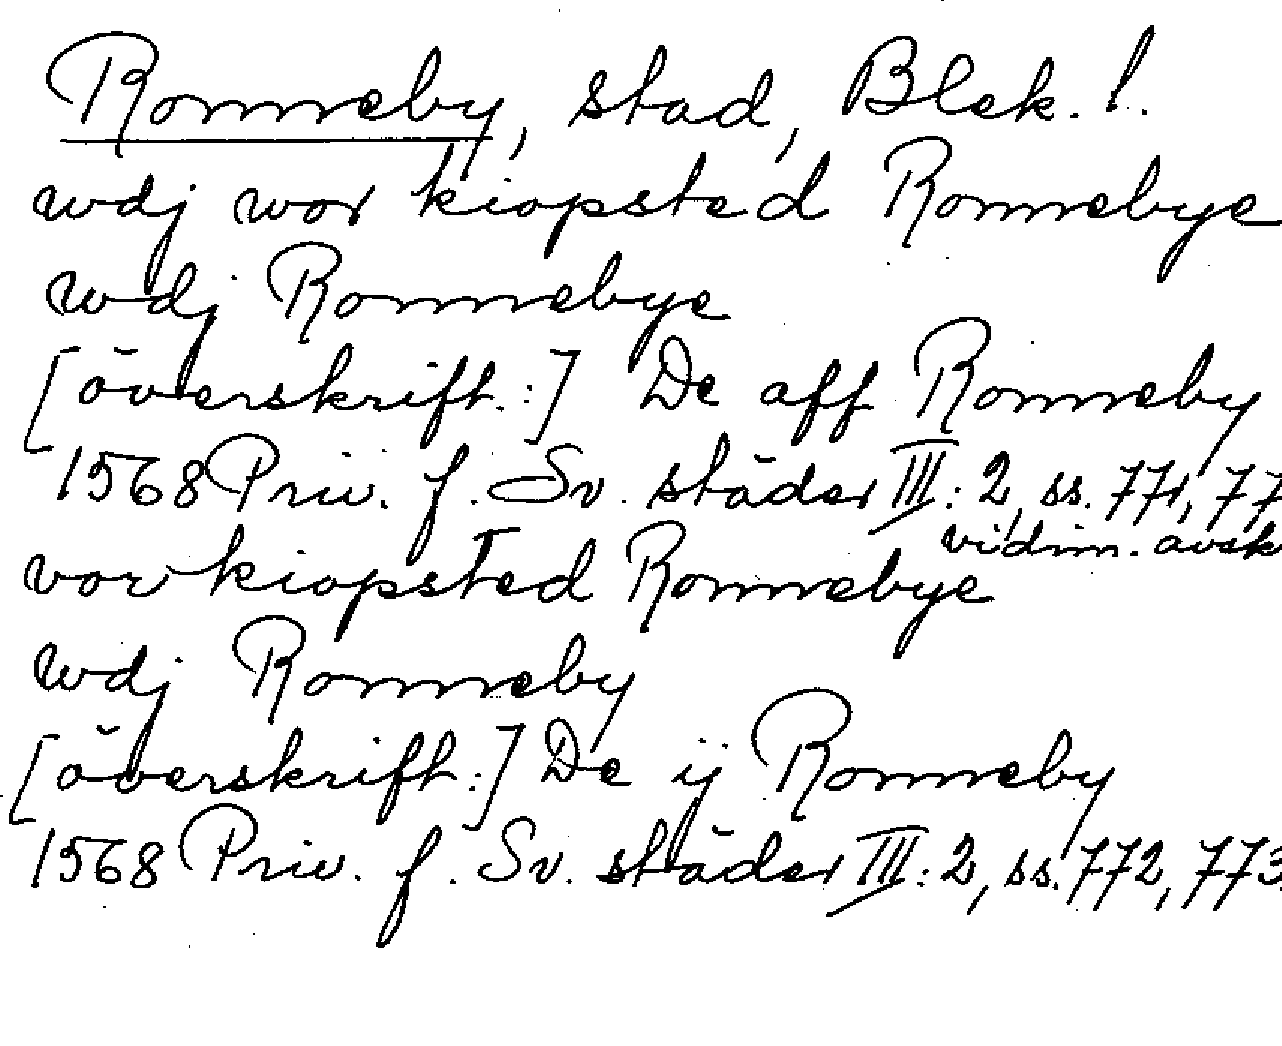 Ronneby, stad, Blek. l.
wdj wor kiopsted Ronnebye
wdj Ronnebye
[överskrift:] De aff Ronneby
1568 Priv. f. Sv. städer III: 2, ss. 771, 77
vidim. avsk
vor kiopsted Ronnebye
wdj Ronneby
[överskrift:] De ij Ronneby
1568 Priv. f. Sv. städer III: 2, ss. 772, 773